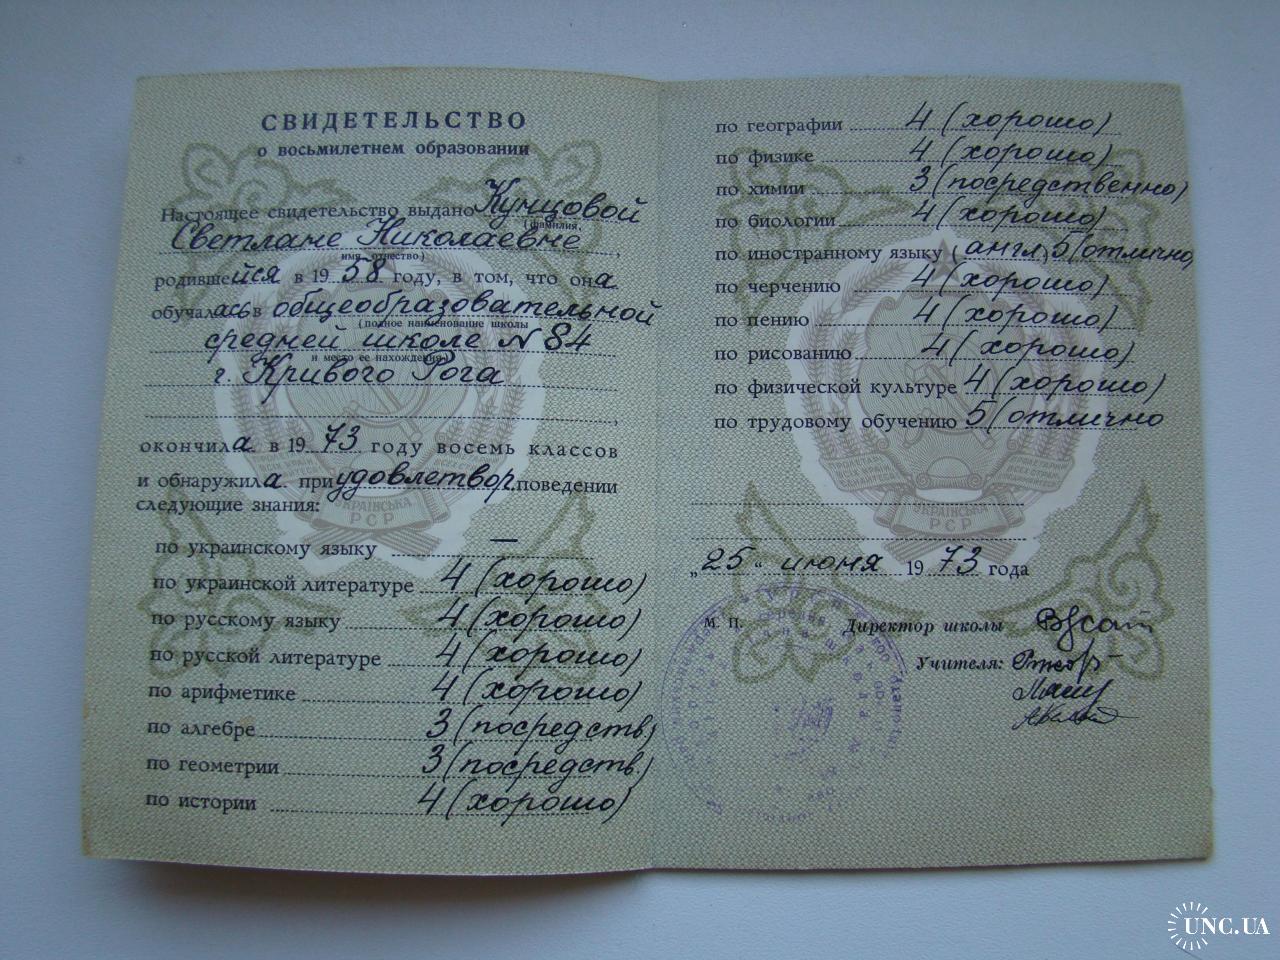 СВИДЕТЕЛЬСТВО
о восьмилетнем образовании
Настоящее свидетельство выдано Кунцовой
(фамилия,
Светлане Николаевне,
имя отчество)
родившейся в 1958 году, в том, что она
обучалась в общеобразовательной
(полное наименование школы
средней школе № 84
и место ее нахождения)
г. Кривого Рога
окончила в 1973 году восемь классов
и обнаружила при удовлетвор. поведении
следующие знания:
по украинскому языку —
по украинской литературе 4 (хорошо)
по русскому языку 4 (хорошо)
по русской литературе 4 (хорошо)
по арифметике 4 (хорошо)
по алгебре 3 (посредств)
по геометрии 3 (посредств.)
по истории 4 (хорошо)
УКРАЇНСЬКА
РСР
по географии 4 (хорошо)
по физике 4 (хорошо)
по химии 3 (посредственно)
по биологии 4 (хорошо)
по иностранному языку (англ) 5 (отлично)
по черчению 4 (хорошо)
по пению 4 (хорошо)
по рисованию 4 (хорошо)
по физической культуре 4 (хорошо)
по трудовому обучению 5 (отлично
УКРАЇНСЬКА
РСР
„25“ июня 1973 года
М. П. Директор школы
Учителя:
UNC.UA